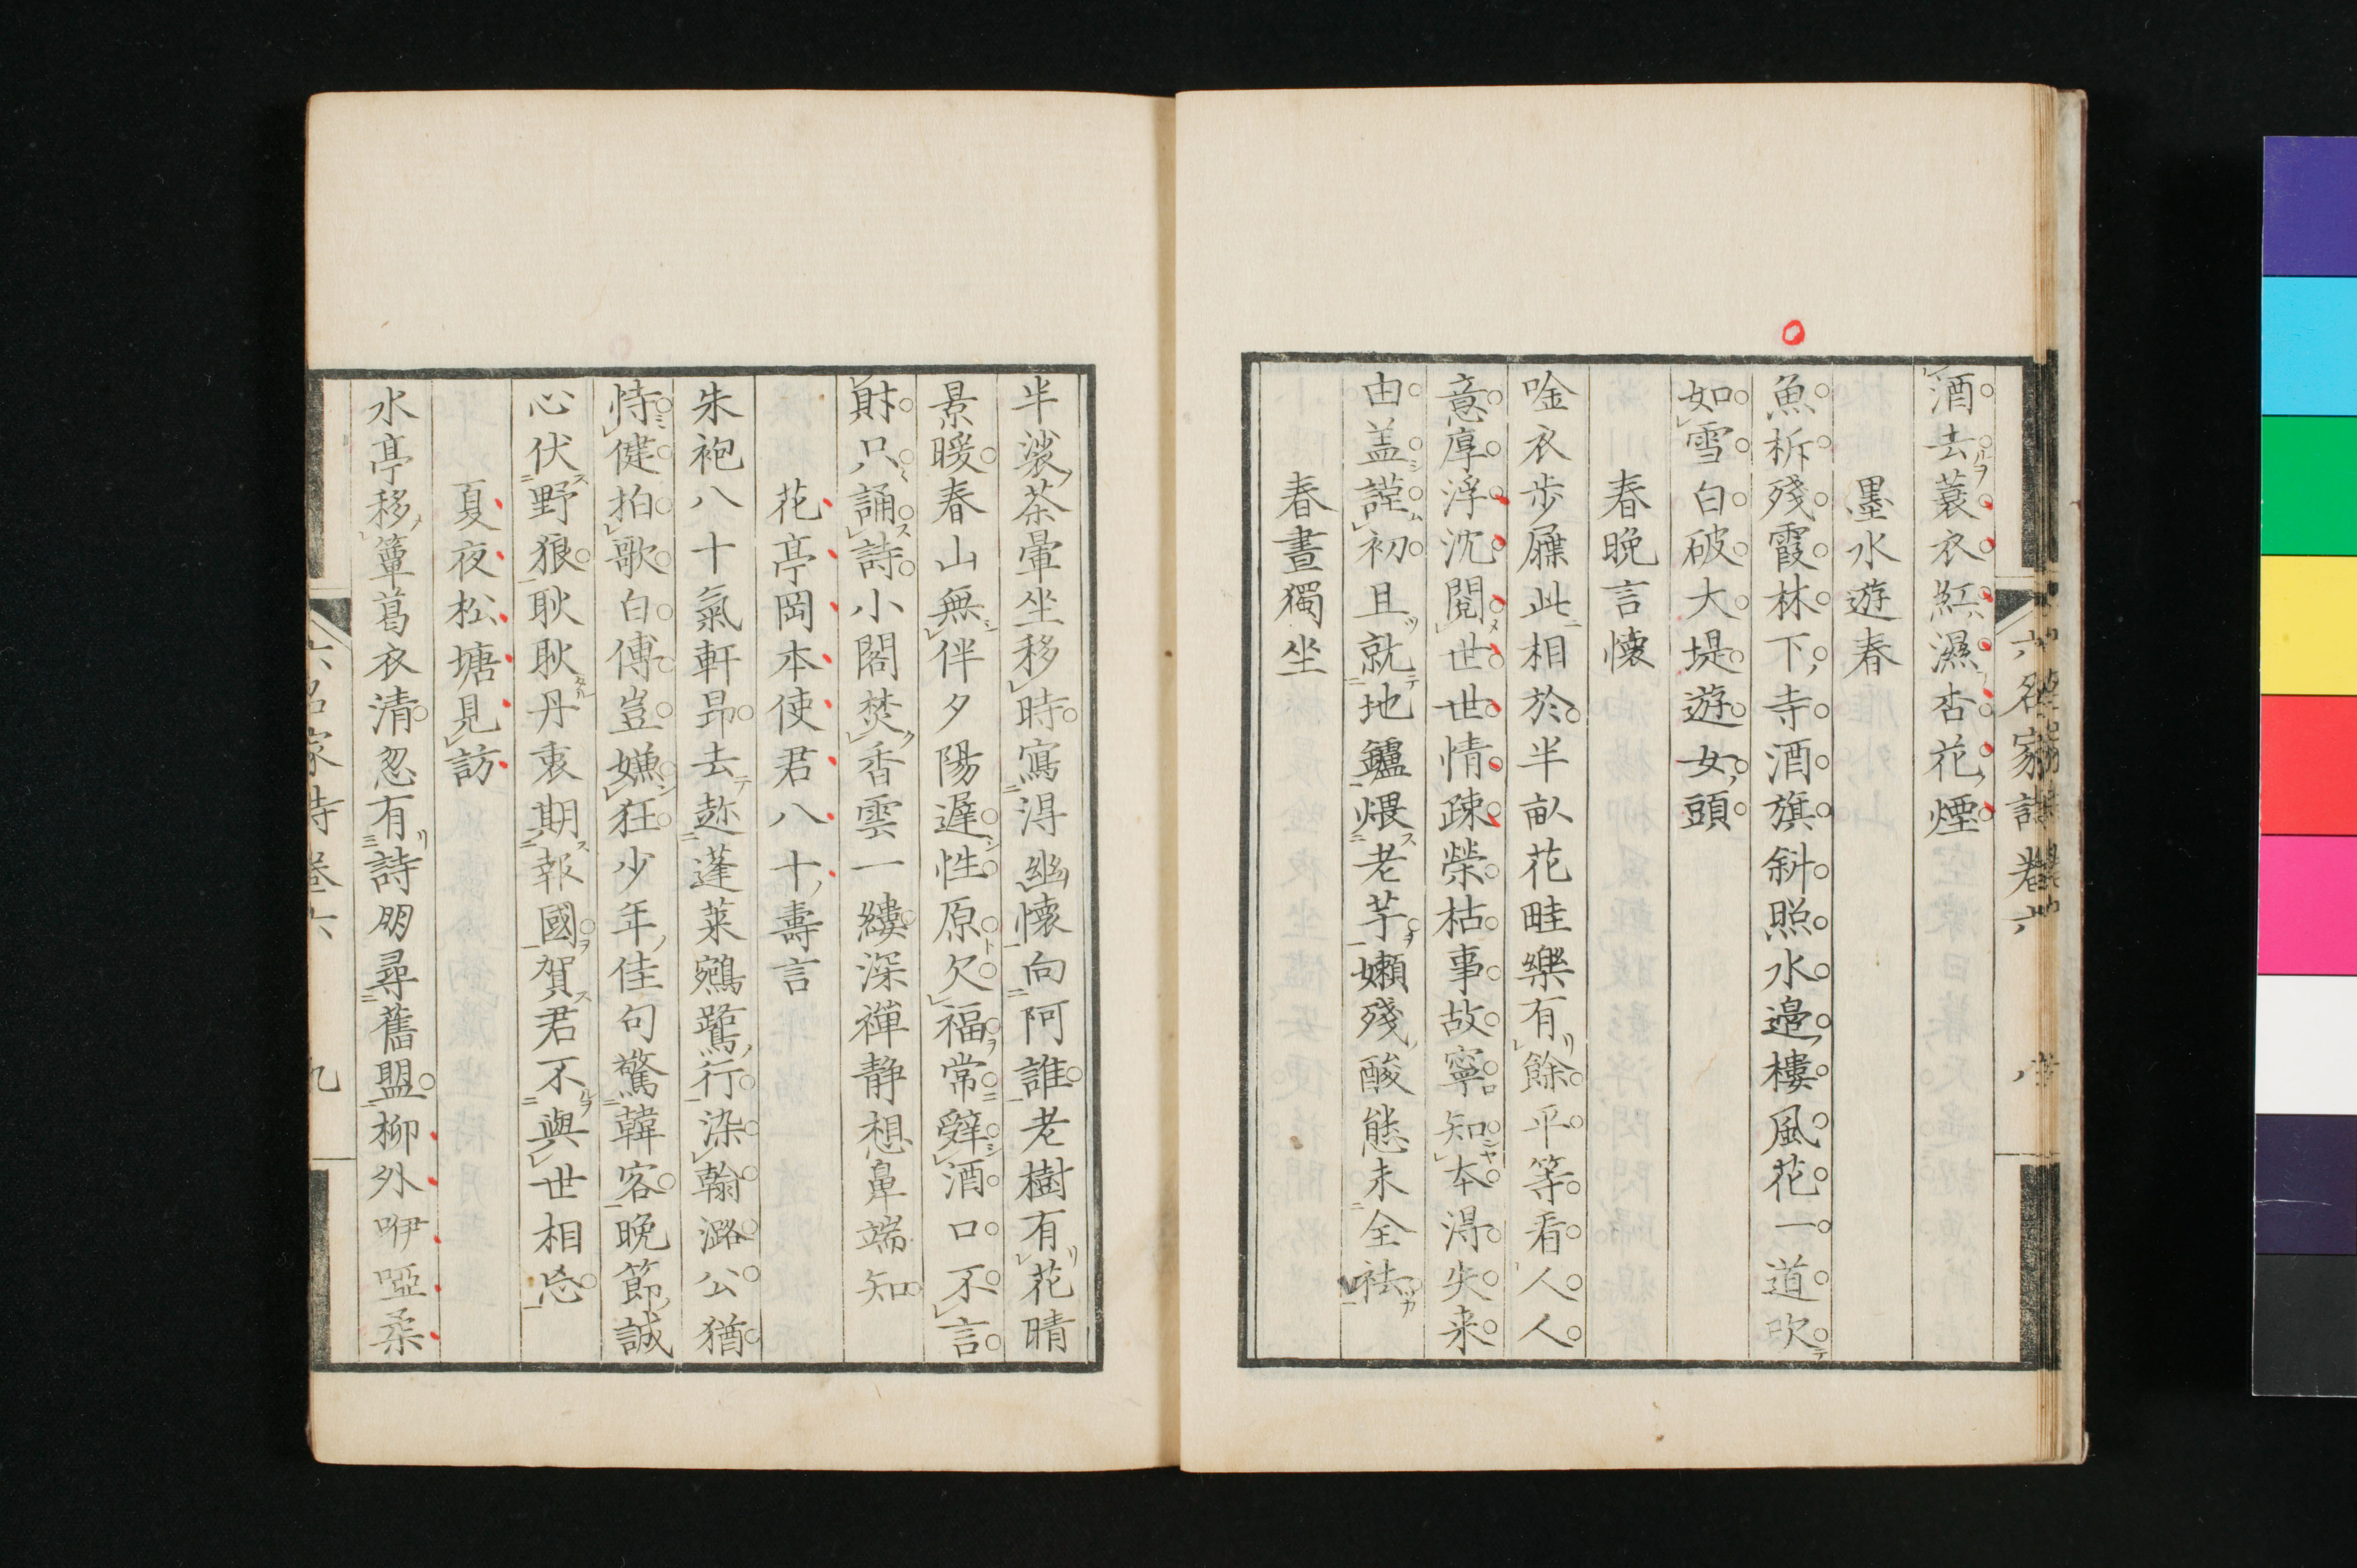 六名家詩卷六 八
酒去蓑衣紅濕杏花煙
墨水遊春
魚柝殘霞林下寺酒旗斜照水邉樓風花一道吹
如雪白破大堤遊女頭
春晩言懷
唫衣歩屧此相於半畝花畦樂有餘平等看人人
意厚浮沈閲世世情疎榮枯事故寧知本淂失来
由盖謹初且就地鑪煨老芋嬾殘酸態未全祛
春晝獨坐
半裳茶暈坐移時寫淂幽懷向阿誰老樹有花晴
景暖春山無伴夕陽遲性原欠福常辤酒口不言
財只誦詩小閣焚香雲一縷深禪静想鼻端知
花亭岡本使君八十壽言
朱袍八十氣軒昂去趂蓬萊鵷鷺行染翰潞公猶
恃健拍歌白傅豈嫌狂少年佳句驚韓客晩節誠
心伏野狼耿耿丹衷期報國賀君不與世相忘
夏夜松塘見訪
水亭移簟葛衣清忽有詩朋尋舊盟柳外咿啞柔
六名家詩卷六 九